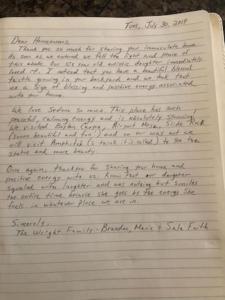 Tues, July 30, 2019
Dear Homeowners,
Thank you so much for sharing your immaculate home.
As soon as we entered we felt the light and peace of
your abode. Our six year old autistic daughter immediately
loved it. I noticed that you have a beautiful blessed
growing in your backyard and we took that
as a sign of blessing and positive energy associated
with your home.
We love Sedona so much. This place has such
peaceful, calming energy and is absolutely stunning.
We visited Boynton Canyon, Airport Mesa, Slide Rock
(soooo beautiful and fun) and on our way out we
will visit Amphitab (I think it is called) to see the
stupa and more beauty.
Once again, thank you for sharing your home and
positive energy with us. Know that our daughter
squealed with laughter and was nothing but smiles
the entire time because she goes by the energy she
feels in whatever place we are in.
Sincerely,
The Wright Family - Brandon, Marie & Sela Faith